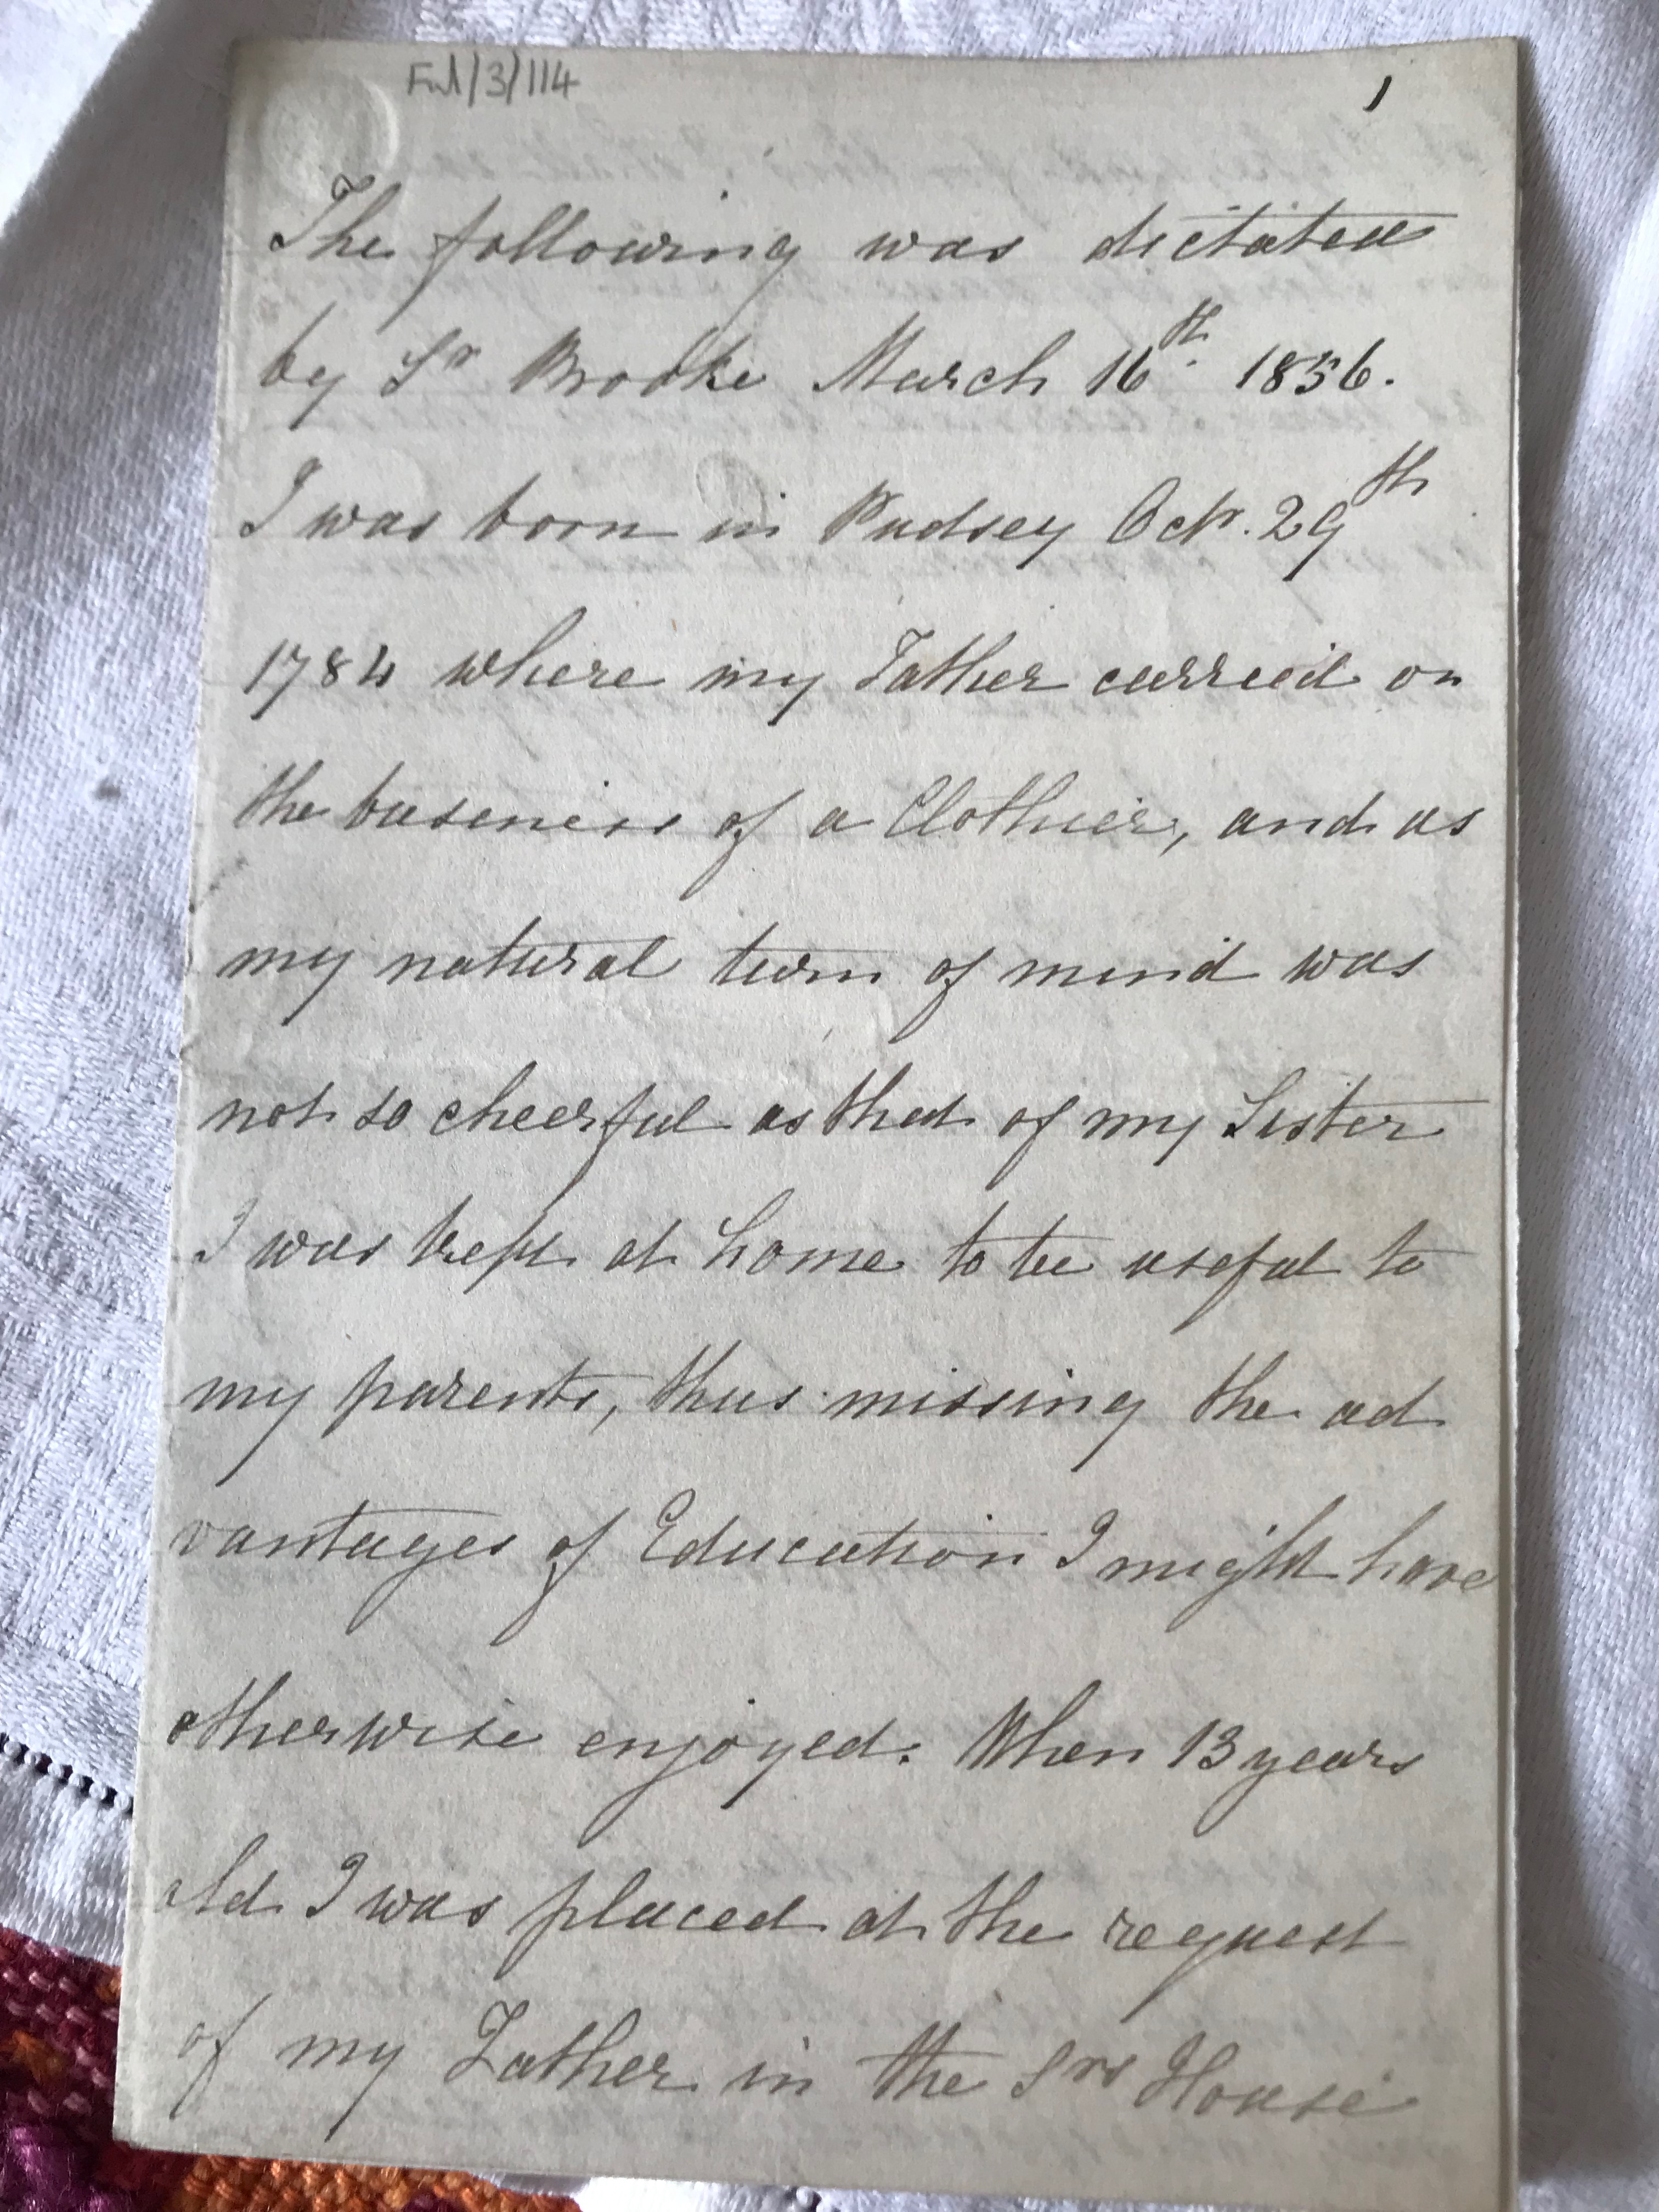 Ful/3/114
1
The following was dictated
by Sr Brooke March 16th. 1856.
I was born in Pudsey Octr. 29th
1784 where my Father carried on
the business of a Clothier, and as
my natural turn of mind was
not so cheerful as that of my Sister
I was kept at home to be useful to
my parents, thus missing the ad
vantages of Education I might have
otherwise enjoyed. When 13 years
old I was placed at the request
of my Father in the Srs House